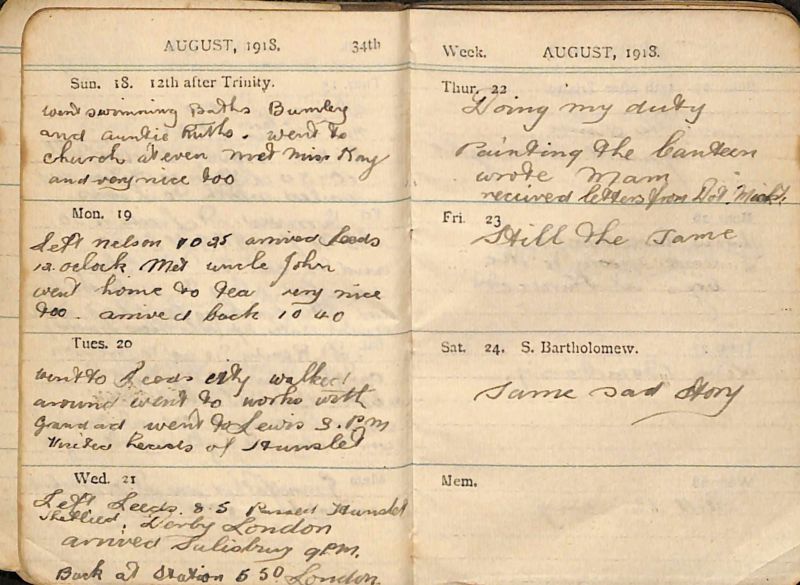 AUGUST, 1918. 34th
Sun. 18. 12th after Trinity.
went swimming Baths Burnley
and auntie Ruths. went to
church at even met Miss Kay
and very nice too
Mon. 19
Left nelson 10 25 arrived Leeds
12. oclock Met uncle John
went home to tea very nice
too. arrived back 10 40
Tues. 20
went to Leeds city walked
around went to works with
Grandad went to Lewis 3. P.M
heads of Hunslet
Wed. 21
Left Leeds. 8.5 Passed Hunslet
Derby London
arrived Salisbury 9 P.M.
Back at Station 5 50 London.
Week. AUGUST, 1918.
Thur. 22
Doing my duty
Painting the Canteen
wrote Mam
recieved letters from Dot.
Fri. 23
Still the same
Sat. 24. S. Bartholomew.
same sad story
Mem.